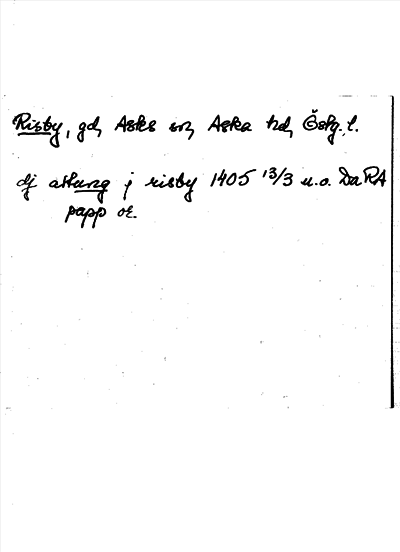 Risby, gd, Asks sn, Aska hd, Östg. l.
dj attung j risby 1405 13/3 u.o. DaRA
papp or.